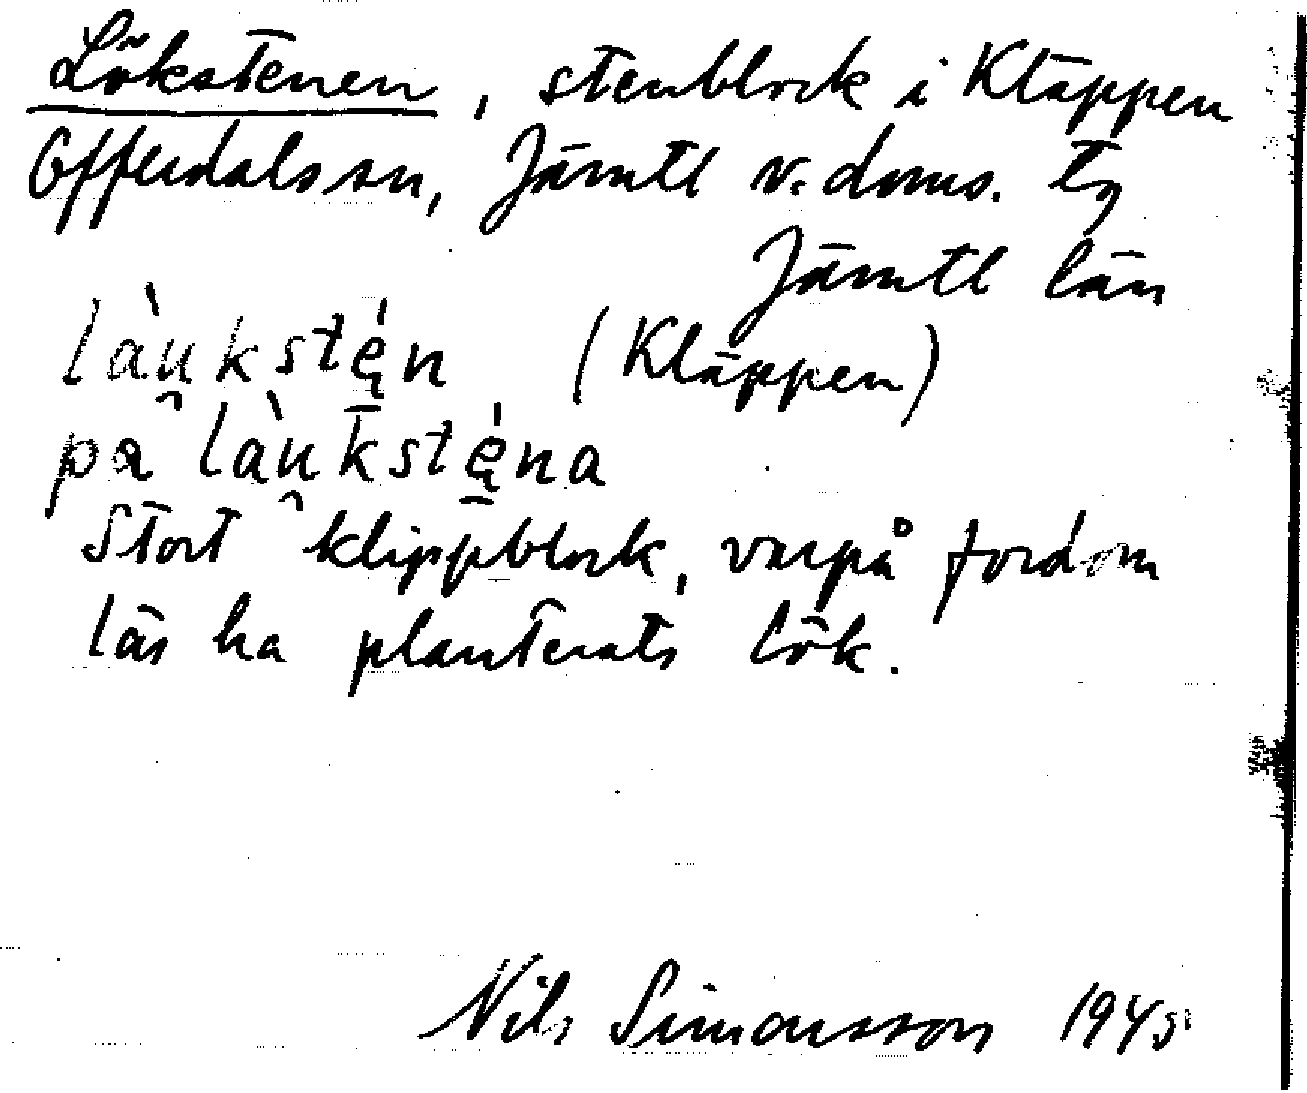 Lökstenen, stenblock i Kläppen
Offerdals sn, Jämtl v. doms. tg
Jämtl län
làu̯kstę́n (Kläppen)
pa làu̯kstę́na
Stort klippblock, varpå fordom
läs ha planterats lök.
Nils Simonsson 1945